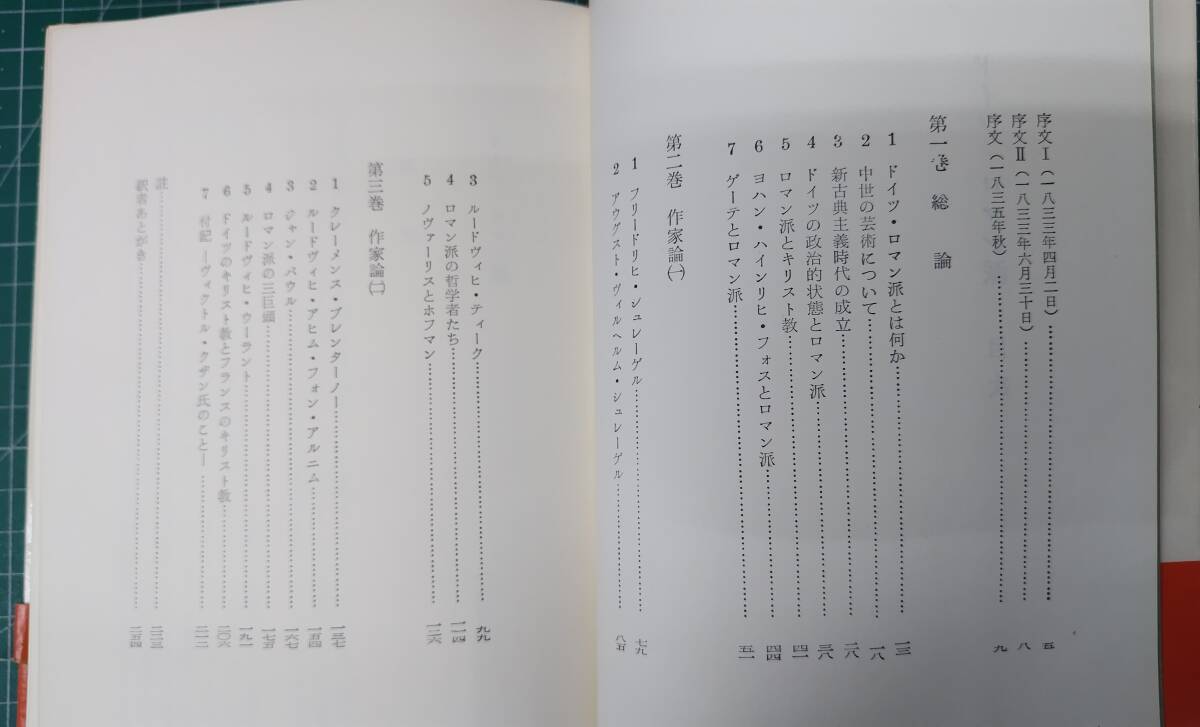 序文Ⅰ(一八三三年四月二日)……五
序文Ⅱ(一八三三年六月三十日)……八
序文(一八三五年秋)……九
第一巻 総論
1 ドイツ・ロマン派とは何か……一三
2 中世の芸術について……一八
3 新古典主義時代の成立……二八
4 ドイツの政治的状態とロマン派……三八
5 ロマン派とキリスト教……四一
6 ヨハン・ハインリヒ・フォスとロマン派……四四
7 ゲーテとロマン派……五一
第二巻 作家論㈠
1 フリードリヒ・シュレーゲル……七九
2 アウグスト・ヴィルヘルム・シュレーゲル……八五
3 ルードヴィヒ・ティーク……九九
4 ロマン派の哲学者たち……一一四
5 ノヴァーリスとホフマン……一二六
第三巻 作家論㈡
1 クレーメンス・ブレンターノ……一三七
2 ルードヴィヒ・アヒム・フォン・アルニム……一五四
3 ジャン・パウル……一六七
4 ロマン派の三巨頭……一七五
5 ルードヴィヒ・ウーラント……一九一
6 ドイツのキリスト教とフランスのキリスト教……二〇六
7 付記―ヴィクトル・クザン氏のこと―……二一二
註……二二三
訳者あとがき……二五四